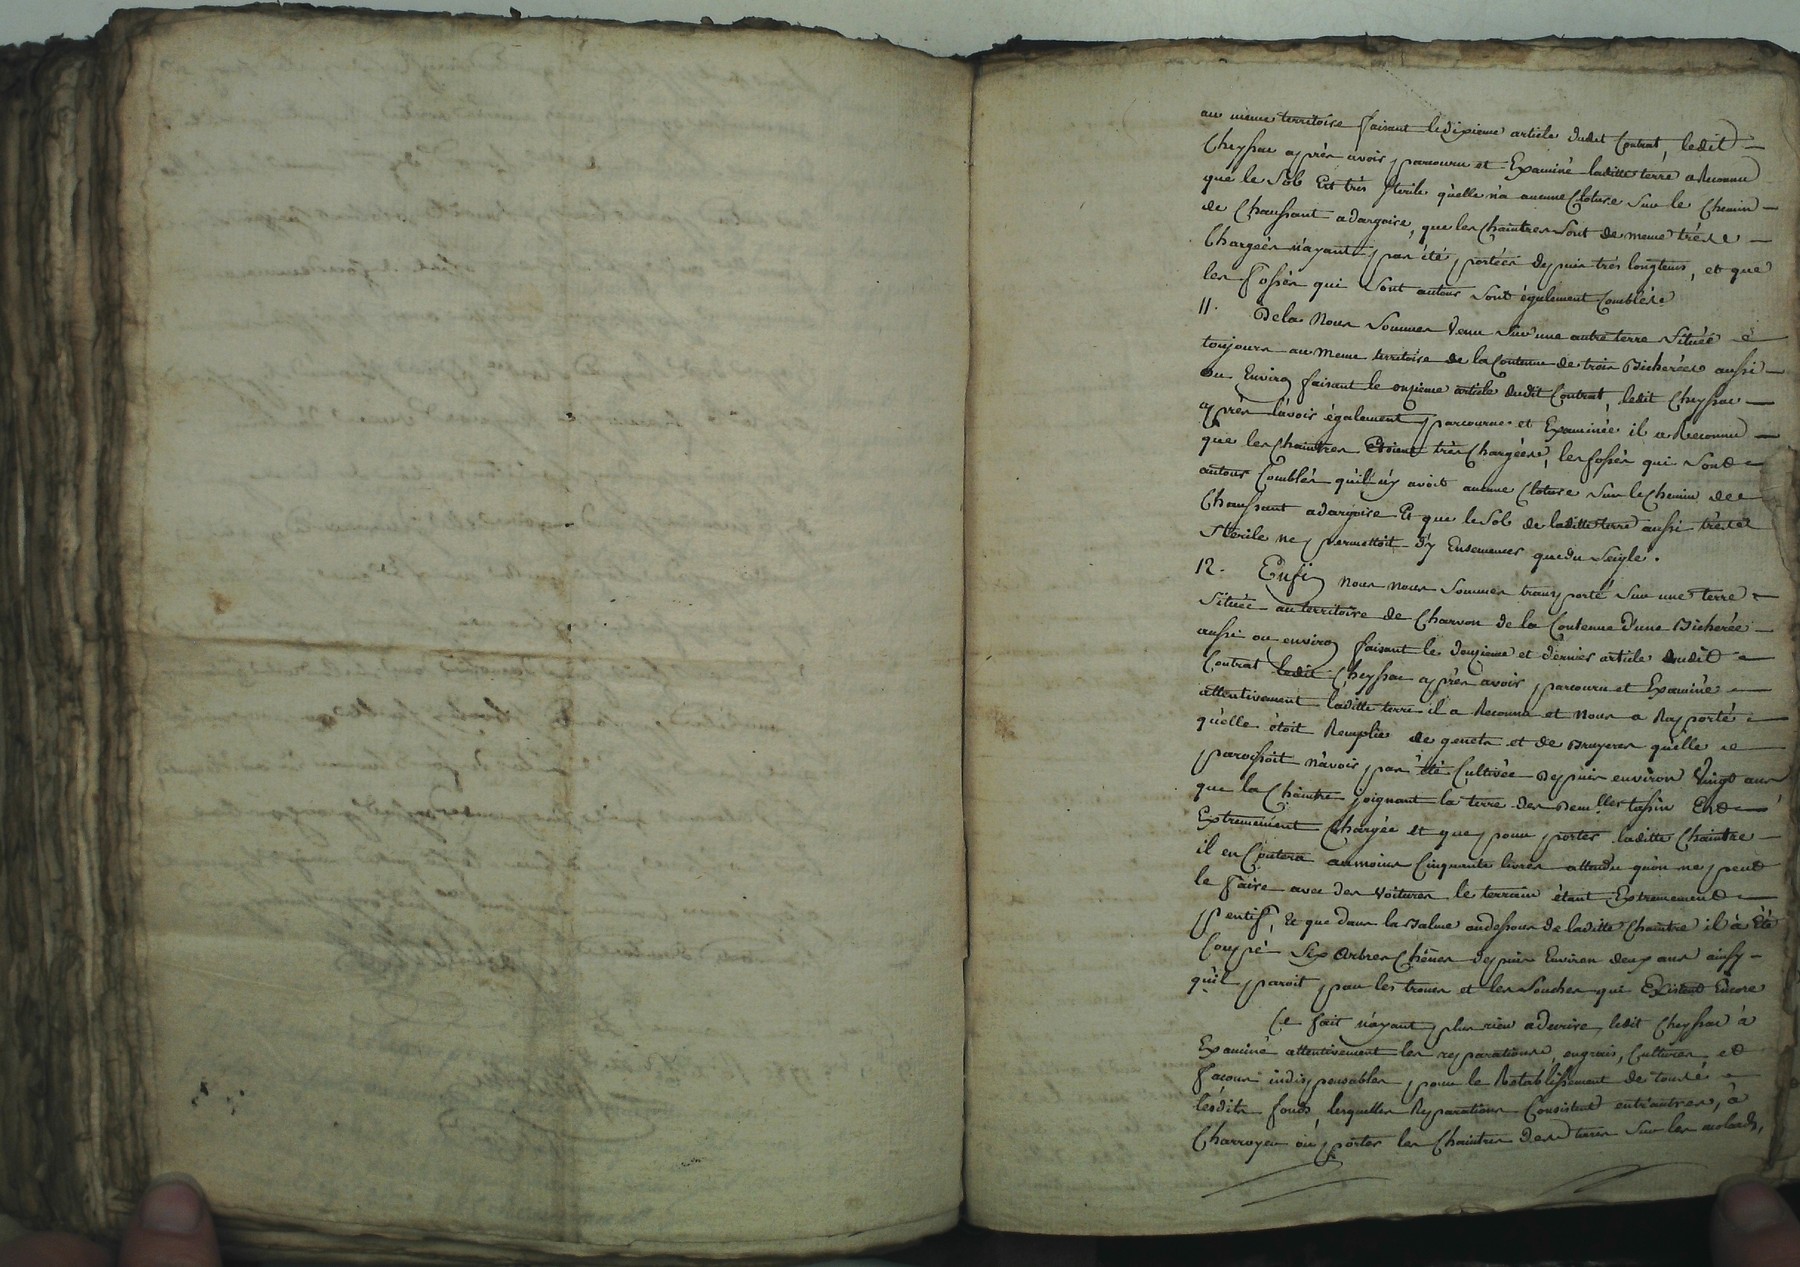 au même territoire faisant le dixieme article dudit Contrat, ledit
Cheyssac après avoir parcouru et Examiné laditte terre a Reconnu
que le Sol Est très sterile qu'elle n'a aucune Cloture sur le Chemin
de Chaussant a dargoire, que les Chaintres sont de meme très
Chargées n'ayant pas été portées depuis très longtems, et que
les fossés qui sont autour sont également Comblés
11. De la Nous Sommes venu Sur une autre terre Située
toujours au meme territoire de la Contenue de trois Bicherées aussi
ou Environ faisant le onzieme article dudit Contrat, ledit Cheyssac
après l'avoir également parcourue et Examinée il a Reconnu
que les Chaintres Etoient très Chargées, les fossés qui sont
autour Comblés qu'il n'y avoit aucune Cloture sur le Chemin de
Chaussant a dargoire Et que le Sol de laditte terre aussi très
Sterile ne permettoit d'y Ensemencer que du Seigle.
12. Enfin nous nous sommes transporté sur une terre
Située au territoire de Charvon de la Contenue d'une Bicherée
aussi ou environ faisant le douzieme et dernier article dudit
Contrat ledit Cheyssac après avoir parcouru et Examiné
attentivement laditte terre il a Reconnu et Nous a Rapporté
qu'elle étoit Remplie de genets et de Bruyeres qu'elle
paroissoit n'avoir pas été Cultivée Depuis environ Vingt ans
que la Chaintre joignant la terre des Demlles tassin Est
Extremement Chargée et que pour porter laditte Chaintre
il en Coutera aumoins Cinquante livres attendu qu'on ne peut
le faire avec des Voitures le terrain étant Extremement
pentif, Et que dans la Balme audessous de laditte Chaintre il a Eté
Coupé Six Arbres Chênes depuis Environ deux ans ainsy
qu'il paroit par les troncs et les Souches qui Existent Encore
Ce fait n'ayant plus rien a decrire, ledit Cheyssac a
Examiné attentivement les reparations, engrais, Cultures et
façons indispensables pour le Retablissement de tous
lesdits fonds, lesquelles Reparations Consistent entr'autres, à
Charroyer ou porter les Chaintres des terres sur les molards,